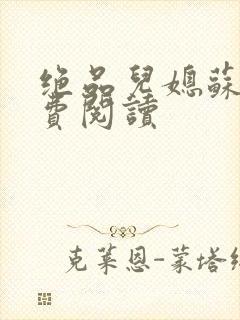 绝品兒媳蘇
費閱讀
克莱恩-蒙塔